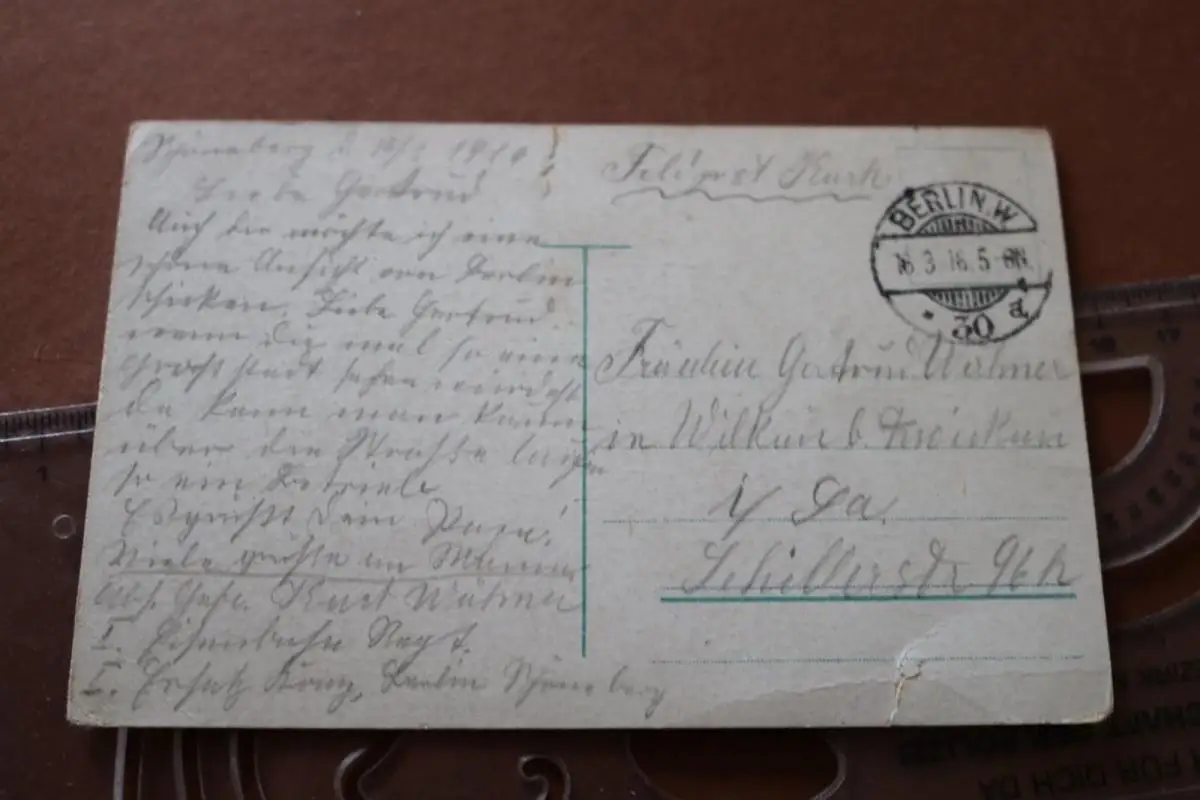 Schöneberg d. 1916
Liebe Gertrud
Auch dir möchte ich eine
schöne Ansicht von Berlin
schicken. Liebe Gertrud.
wenn du mal so eine
Großstadt sehen würdest
da kann man kaum
über die Straße laufen
so ein Betrieb
Es grüßt Dein Papa!
Viele grüße an Mama
Abs. Gefr. Kurt Wähner
I. Eisenbahn Regt.
I. Ersatz Komp, Berlin Schöneberg
Feldpost Karte
BERLIN.W
16.3.16.5-6N.
* 30 a *
Fräulein Gertrud Wähner
in Wilkau b. Zwickau
i/ Sa.
Schillerstr. 96
1
FÜR DICH DA